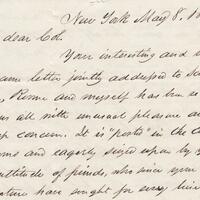 New York May 8.
dear Col.
Your interesting and
letter jointly addressed to
Rome and myself has been
us all with unusual pleasure an
concern. It is "posted" in the C
oms and eagerly seized upon by
titude of friends, who since your
ture have sought for every